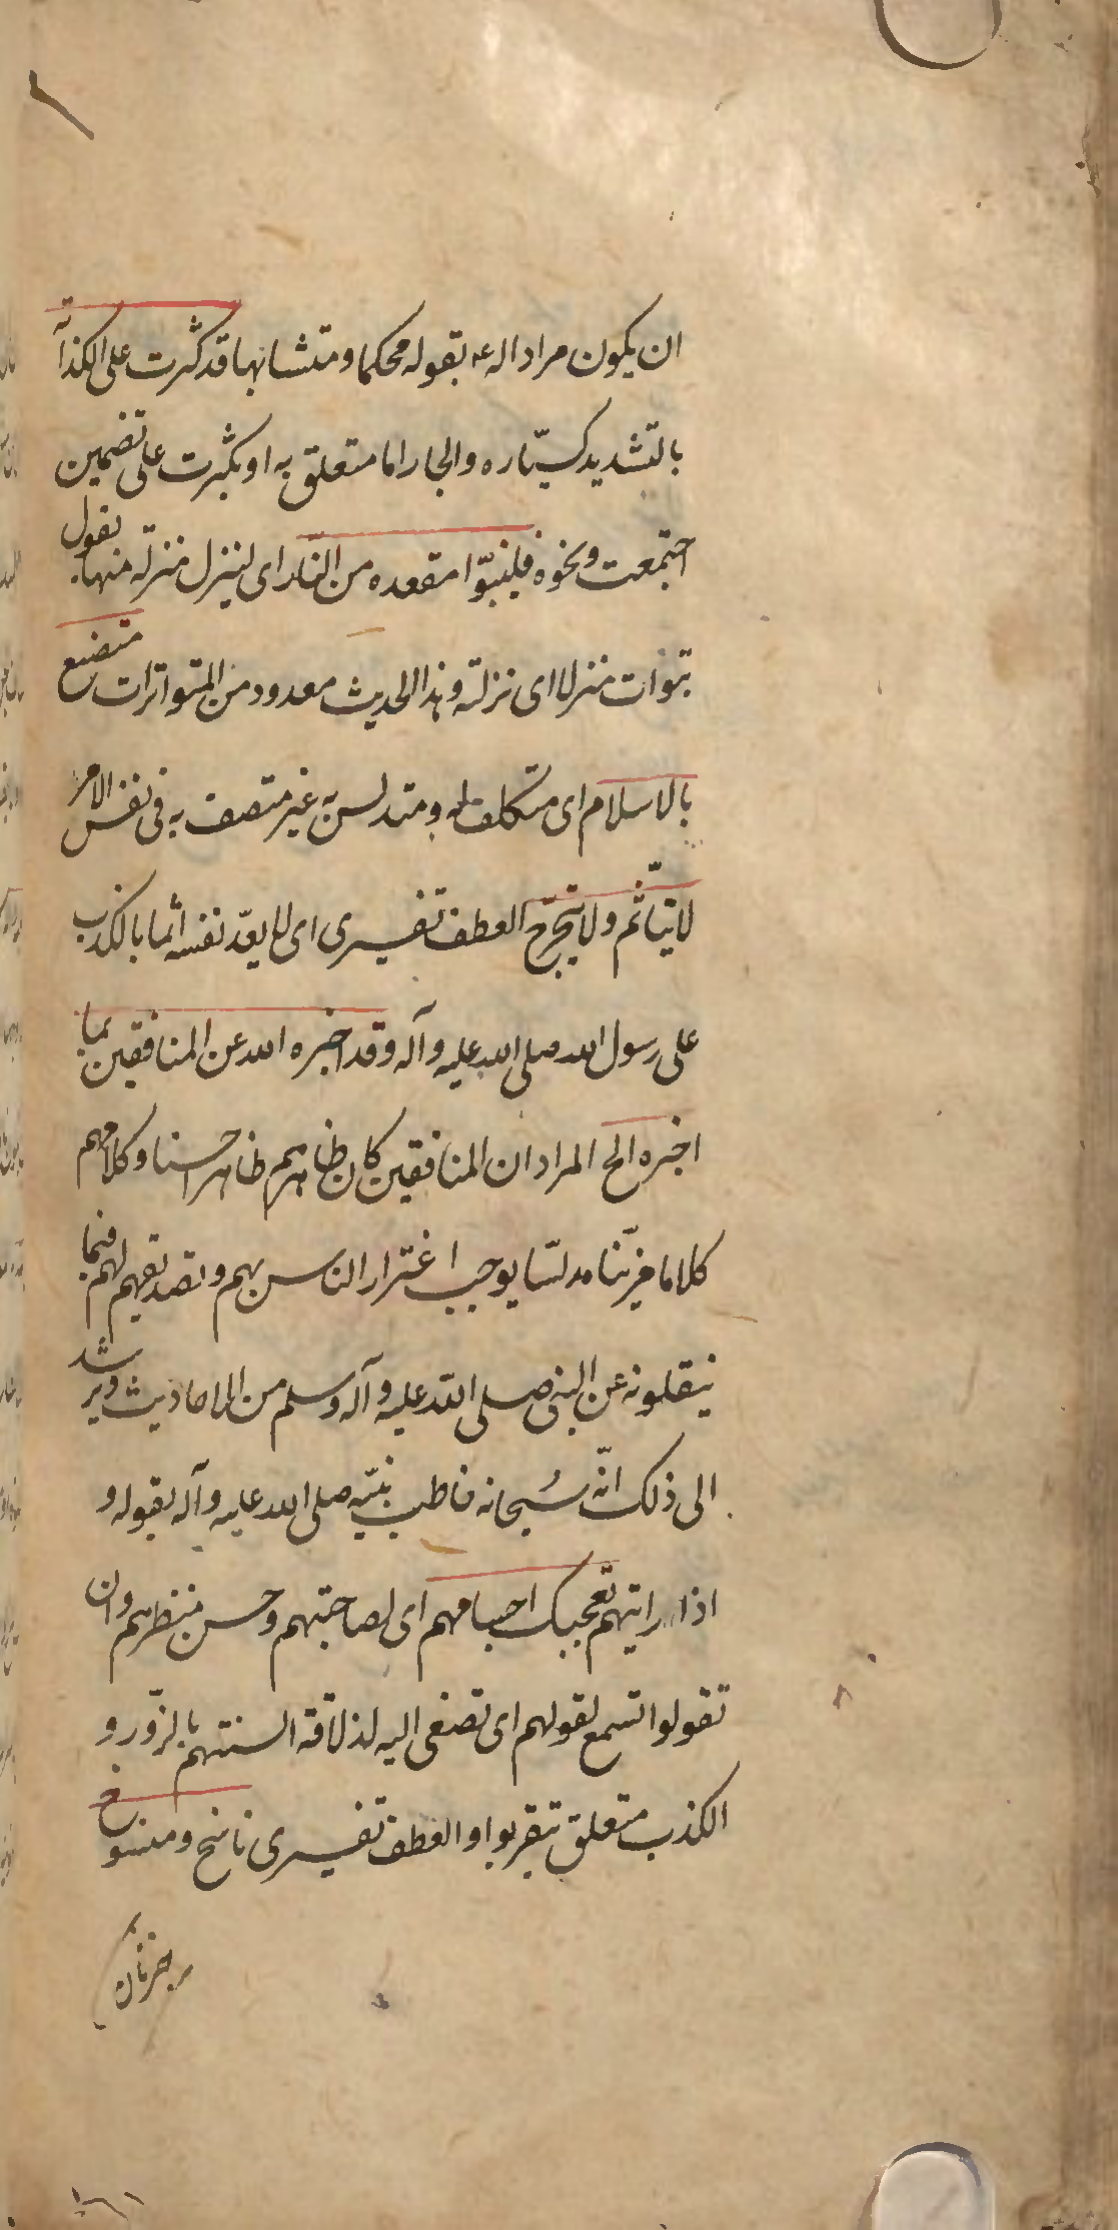 ان يكون مراداله ع بقوله محكما ومتشابها قد كثرت على الكذابة
بالتشديد كسيّاره والجار اما متعلق به او بكثرت على تضمين
اجتمعت ونحوه فليتبوّا مقعده من النار اى لينزل منزله منها يقول
تبوّات منزلا اى نزلته وهذا الحديث معدود من المتواترات متصنع
بالاسلام اى متكلف له ومتدلس به غير متصف به فى نفس الامر
لا يتاثّم ولا يتحرّج العطف تفسيرى اى لا يعدّ نفسه اثما بالكذب
على رسول الله صلى الله عليه وآله وقد اخبره الله عن المنافقين بما
اخبره الخ المراد ان المنافقين كان ظاهرهم ظاهرا حسنا وكلامهم
كلاما مزيّنا مدلسّا يوجب اغترار الناس بهم وتصديقهم لهم فيما
ينقلونه عن النبى صلى الله عليه وآله وسلم من الاحاديث ويرشد
الى ذلك انّه سُبحانه خاطب نبيّه صلى الله عليه وآله بقوله و
اذا رايتهم تعجبك اجسامهم اى لصباحتهم وحسن منظرهم وان
تقولوا تسمع لقولهم اى تصغى اليه لذلاقة السنتهم بالزّور و
الكذب متعلق بتقربوا والعطف تفسيرى ناسخ ومنسوخ